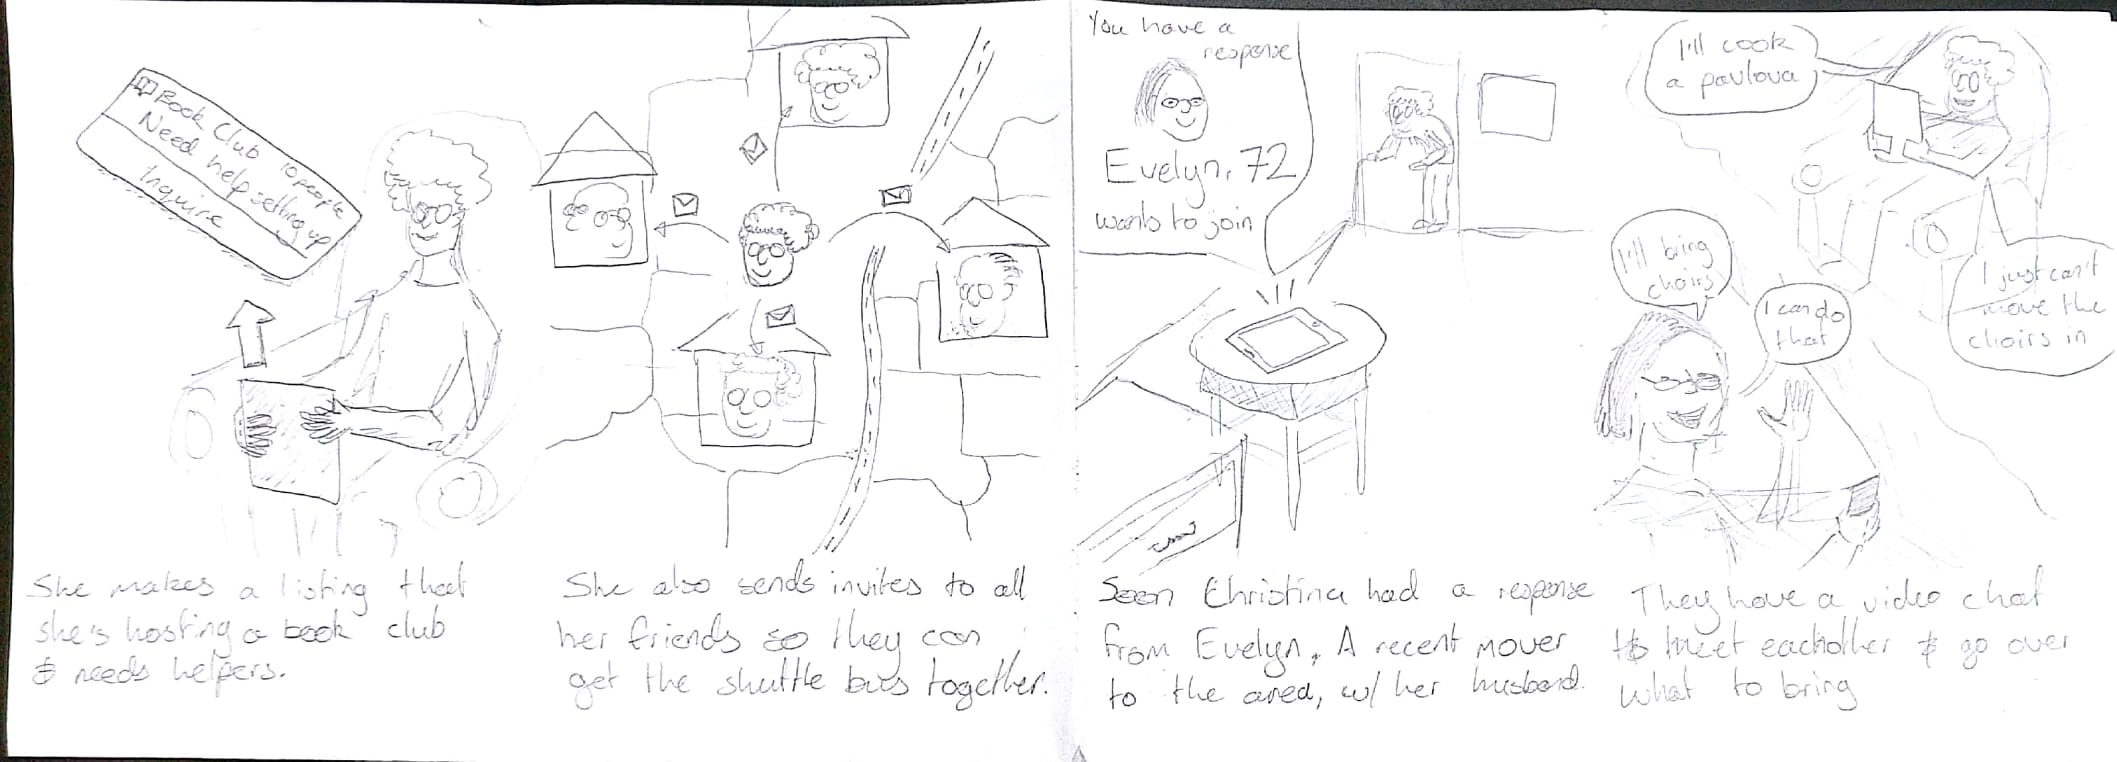 Book Club 10 people
Need help setting up
Inquire
She makes a listing that
she's hosting a book club
& needs helpers.
She also sends invites to all
her friends so they can
get the shuttle bus together.
You have a
response
Evelyn, 72
wants to join
Soon Christina had a response
from Evelyn, A recent mover
to the area, w/ her husband.
I'll cook
a pavlova
I'll bring
chairs
I can do
that
I just can't
move the
chairs in
They have a video chat
to meet eachother & go over
what to bring